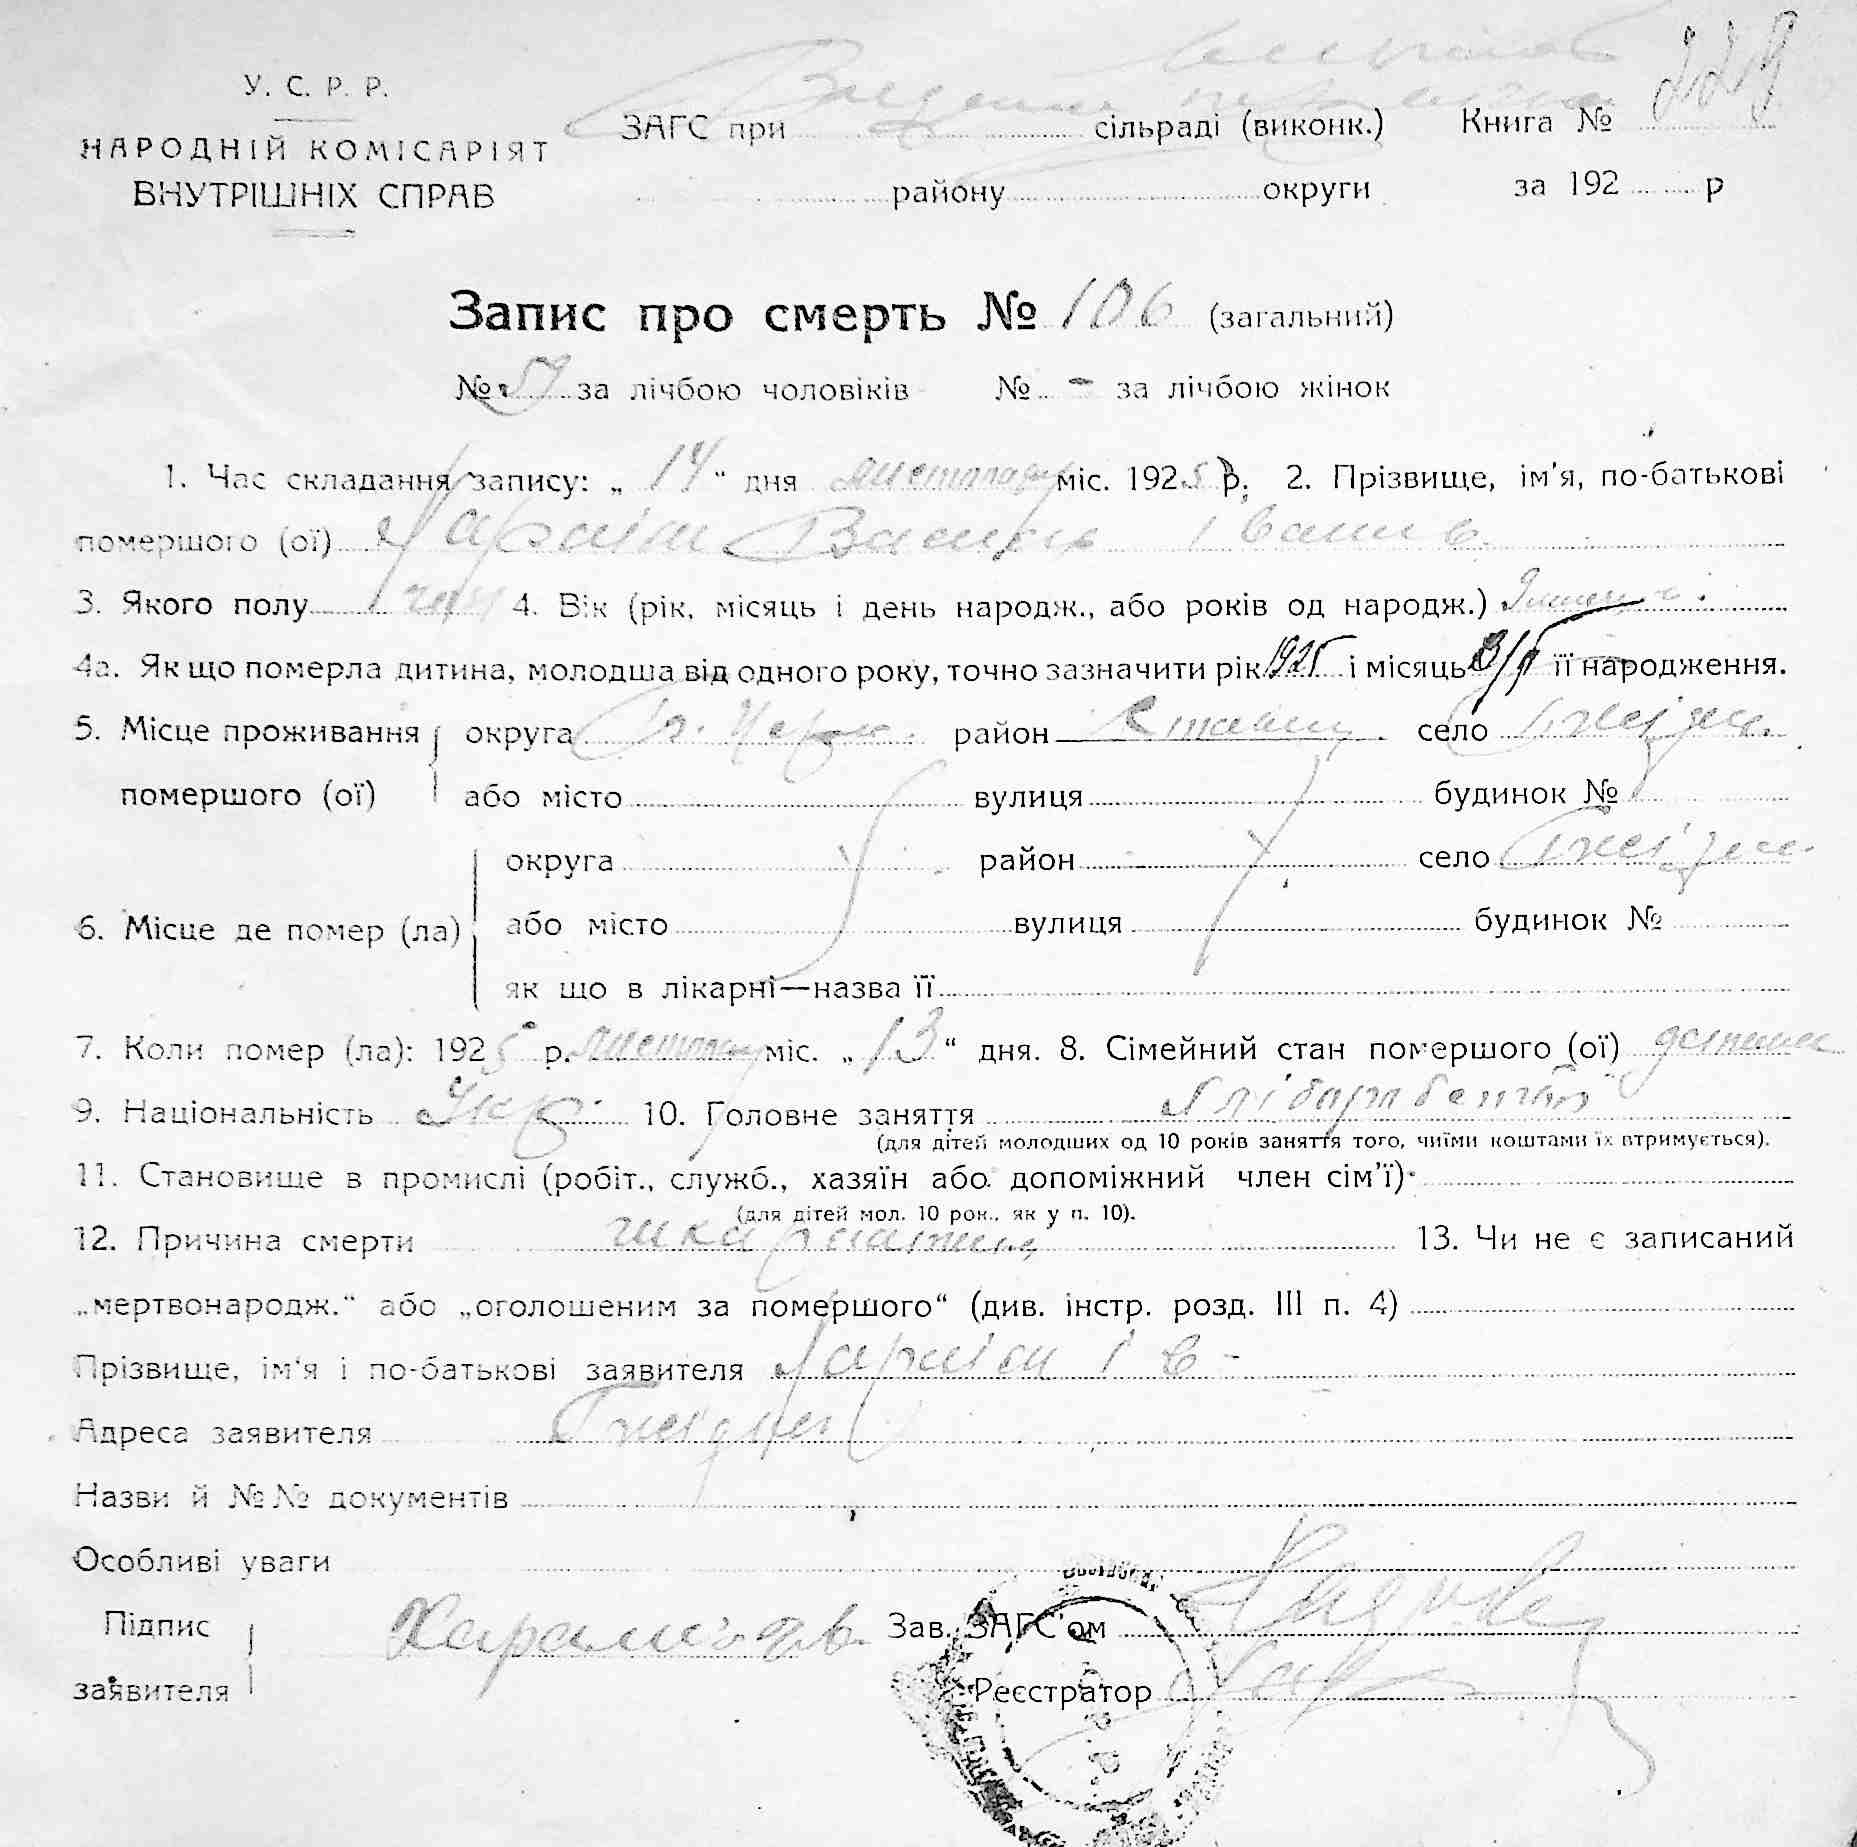 У. С. Р. Р.
НАРОДНІЙ КОМІСАРІЯТ
ВНУТРІШНІХ СПРАВ
ЗАГС при сільраді (виконк.) Книга №
району округи за 192 р
Запис про смерть № 106 (загальний)
№ 57 за лічбою чоловіків № - за лічбою жінок
1. Час складання запису: „ 14 “ дня листопаду міс. 1925 р. 2. Прізвище, ім'я, по-батькові
помершого (ої) Василь Іванів
3. Якого полу чол 4. Вік (рік, місяць і день народж., або років од народж.)
4а. Як що померла дитина, молодша від одного року, точно зазначити рік 1925 і місяць її народження.
5. Місце проживання округа Б. Церк. район село
помершого (ої) або місто вулиця будинок №
округа район село
6. Місце де помер (ла) або місто вулиця будинок №
як що в лікарні—назва її
7. Коли помер (ла): 1925 р. листопаду міс. „ 13 “ дня. 8. Сімейний стан помершого (ої) дитина
9. Національність Укр. 10. Головне заняття Хліборобство
(для дітей молодших од 10 років заняття того, чиїми коштами їх втримується).
11. Становище в промислі (робіт., служб., хазяїн або допоміжний член сім'ї)
(для дітей мол. 10 рок., як у п. 10).
12. Причина смерти шкарлатина 13. Чи не є записаний
„мертвонародж.“ або „оголошеним за помершого“ (див. інстр. розд. III п. 4)
Прізвище, ім'я і по-батькові заявителя Ів -
Адреса заявителя
Назви й №№ документів
Особливі уваги
Підпис Зав. ЗАГС'ом
заявителя Реєстратор